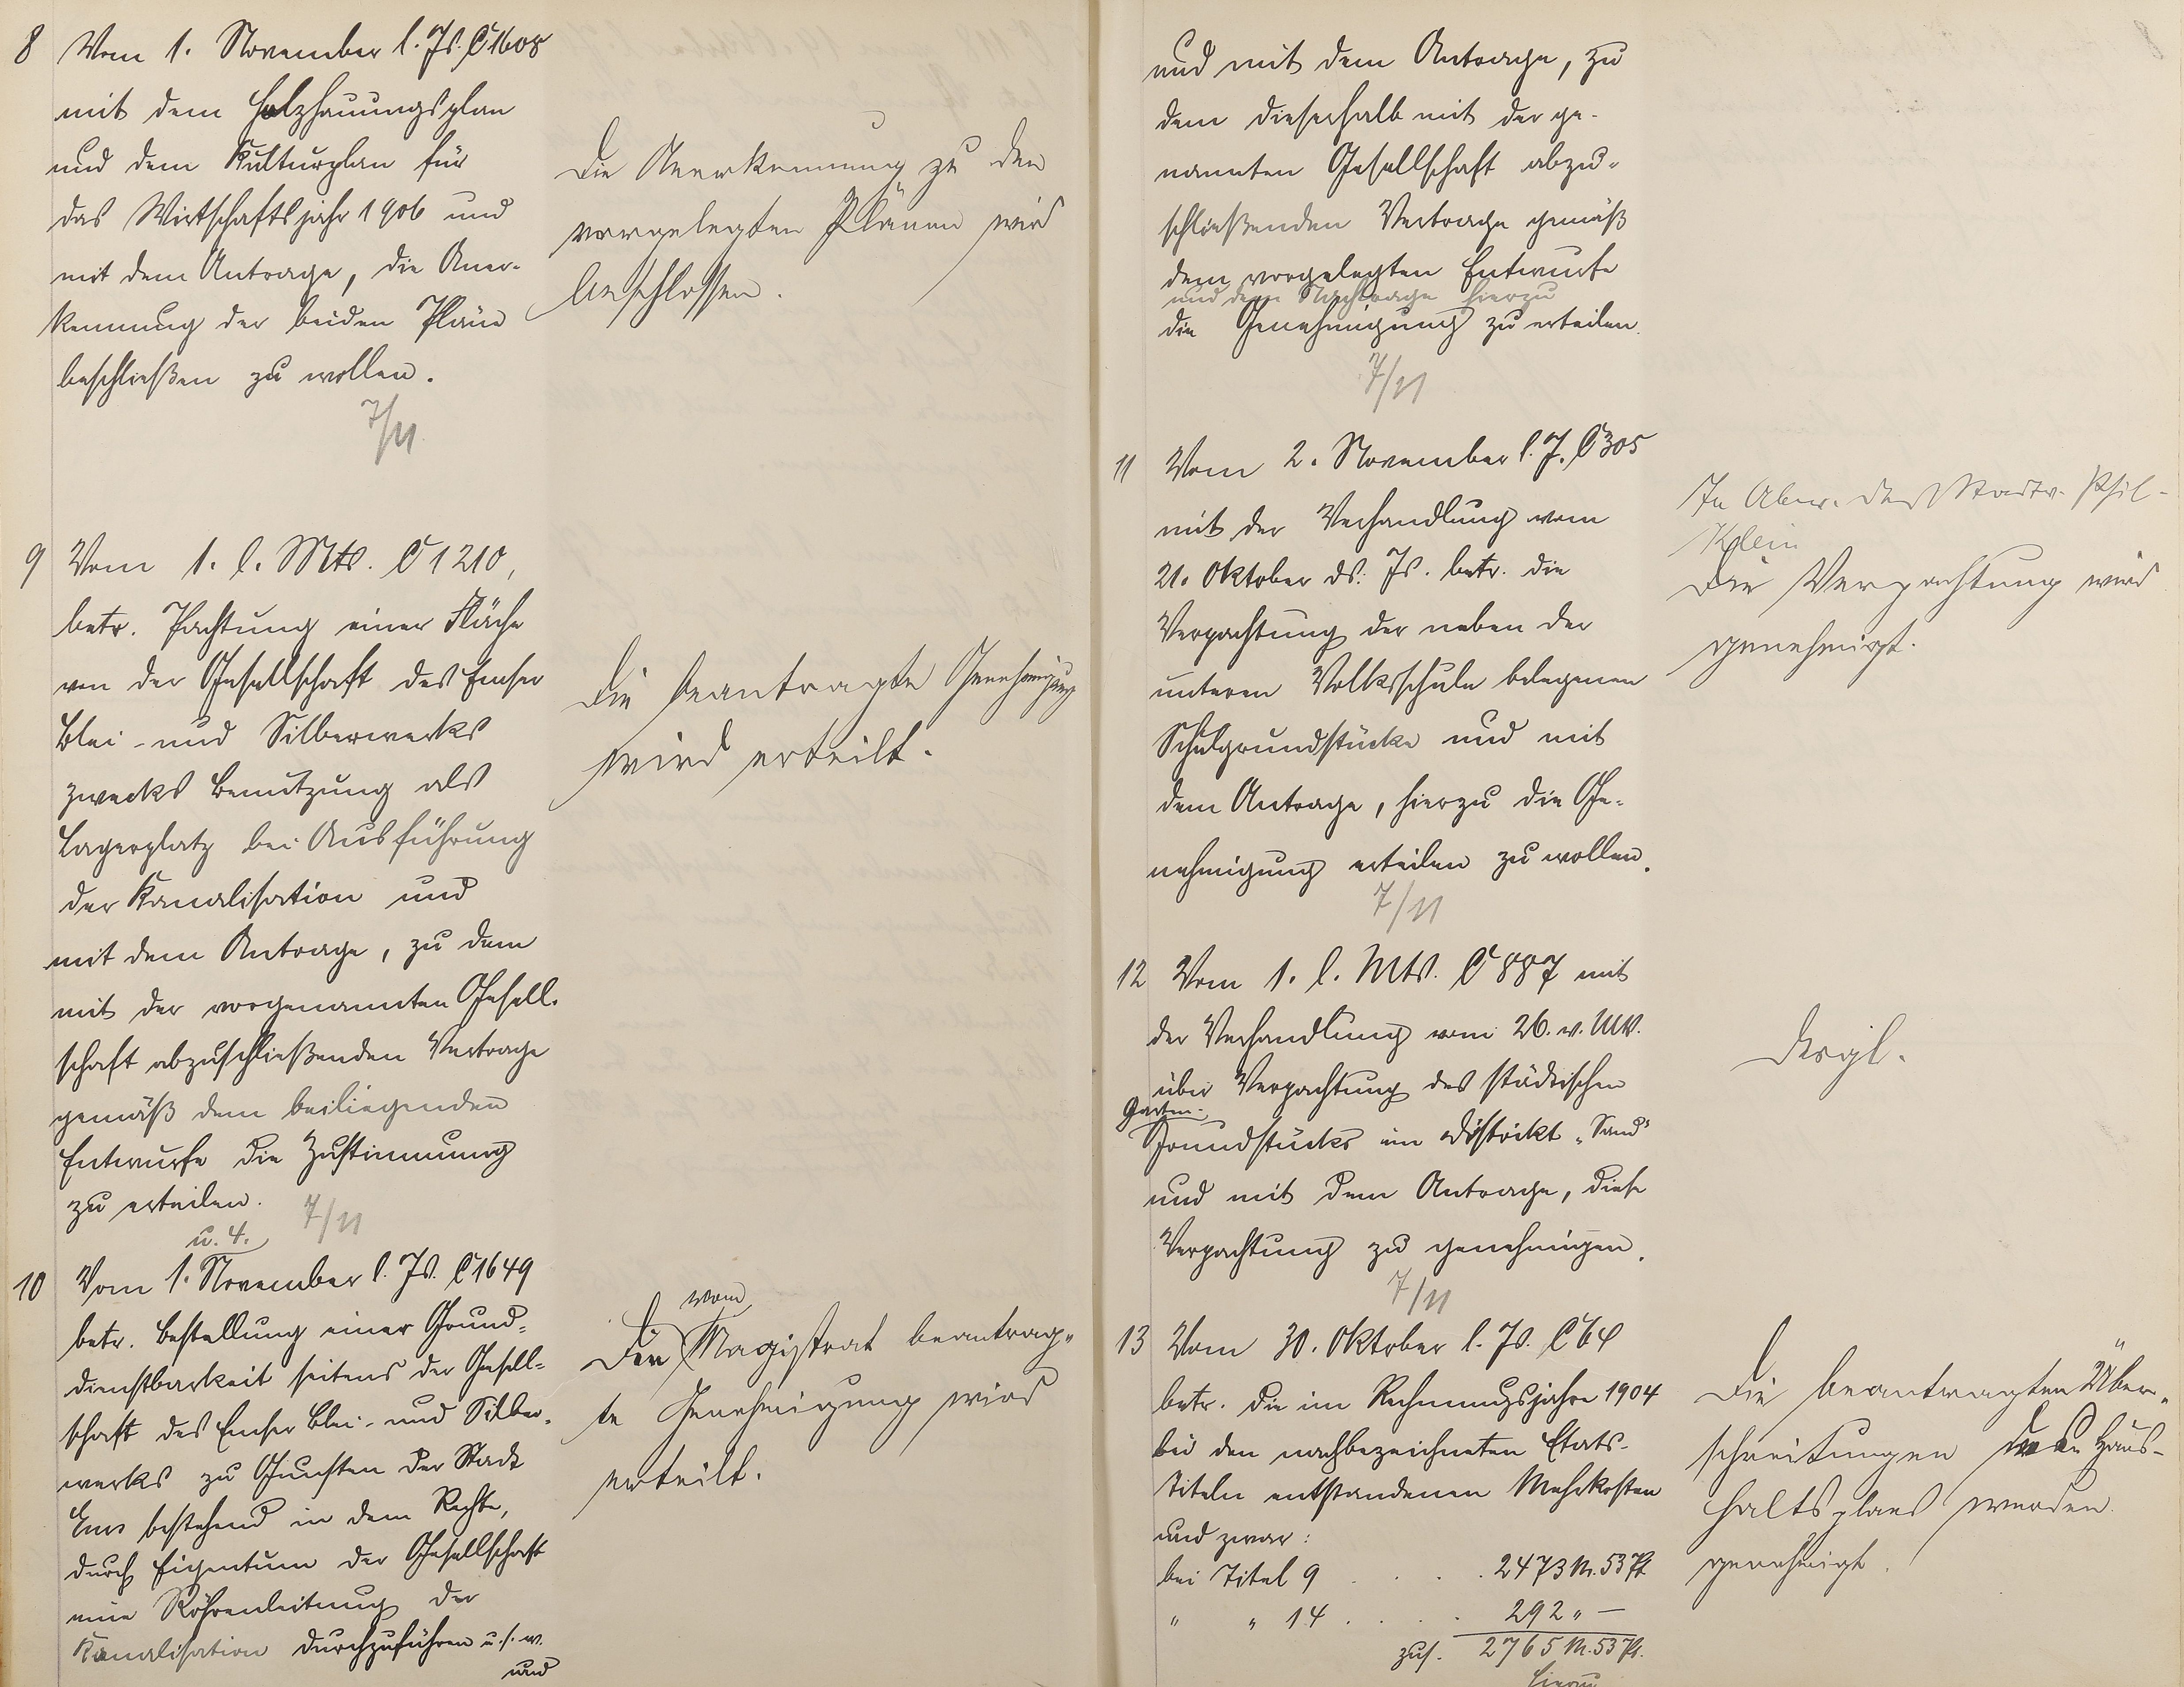 8 Vom 1. November l. Js. C 1608
mit dem Holzhauungsplan
und dem Kulturplan für
das Wirtschaftsjahr 1906 und
mit dem Antrage, die Aner-
kennung der beiden Pläne
beschließen zu wollen.
7/11
Die Anerkennung zu den
vorgelegten Plänen wird
beschlossen.
9 Vom 1. l. Mts. C 1210,
betr. Pachtung einer Fläche
von der Gesellschaft des Emser
Blei- und Silberwerks
zwecks Benutzung als
Lagerplatz bei Ausführung
der Kanalisation und
mit dem Antrage, zu dem
mit der vorgenannten Gesell-
schaft abzuschließenden Vertrage
gemäß dem beiliegenden
Entwurfe die Zustimmung
zu erteilen.
7/11
Die beantragte Genehmigung
wird erteilt.
u. 4.
10 Vom 1. November l. Js. C 1649
betr. Bestellung einer Grund-
dienstbarkeit seitens der Gesell-
schaft des Emser Blei- und Silber-
werks zu Gunsten der Stadt
Ems bestehend in dem Rechte,
durch Eigentum der Gesellschaft
eine Röhrenleitung der
Kanalisation durchzuführen u.s.w.
und
vom
Die Magistrat beantrag-
te Genehmigung wird
erteilt.
und mit dem Antrage, zu
dem dieserhalb mit der ge-
nannten Gesellschaft abzu-
schließenden Vertrage gemäß
dem vorgelegten Entwurfe
und dem Nachtrage hierzu
die Genehmigung zu erteilen.
7/11
11 Vom 2. November l. J. C 305
mit der Verhandlung vom
21. Oktober ds. Js. betr. die
Verpachtung der neben der
unteren Volksschule belegenen
Schulgrundstücke und mit
dem Antrage, hierzu die Ge-
nehmigung erteilen zu wollen.
7/11
In Abw. des Stadtv. Phil.
Klein
Die Verpachtung wird
genehmigt.
12 Vom 1. l. Mts. C 887 mit
der Verhandlung vom 26. v. Mts.
über Verpachtung des städtischen
Garten-
Grundstücks im Distrikt „Sand"
und mit dem Antrage, diese
Verpachtung zu genehmigen.
7/11
Desgl.
13 Vom 30. Oktober l. Js. C 64
betr. die im Rechnungsjahre 1904
bei den nachbezeichneten Etats-
titeln entstandenen Mehrkosten
und zwar:
bei Titel 9 . . . . 2473 M. 53 Pf.
" " 14 . . . . 292 „ —
zus. 2765 M. 53 Pf.
hierzu
Die beantragten Über-
schreitungen des Haus-
haltsplans werden
genehmigt.